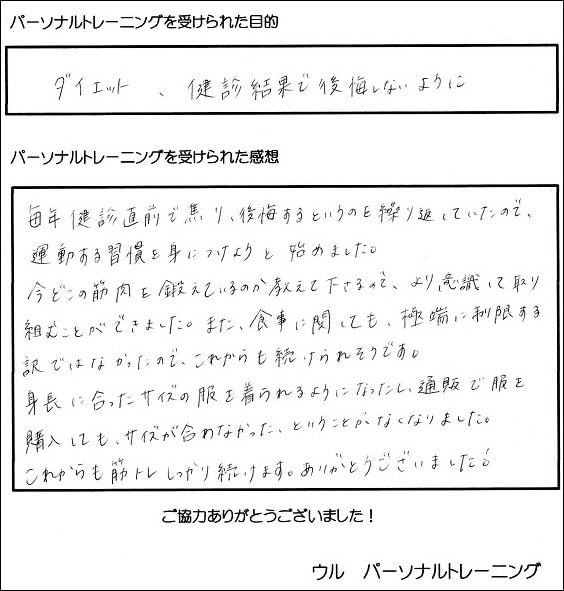 パーソナルトレーニングを受けられた目的
ダイエット、健診結果で後悔しないように
パーソナルトレーニングを受けられた感想
毎年健診直前で焦り、後悔するというのを繰り返していたので、
運動する習慣を身につけようと始めました。
今どこの筋肉を鍛えているのか教えて下さるので、より意識して取り
組むことができました。また、食事に関しても、極端に制限する
訳ではなかったので、これからも続けられそうです。
身長に合ったサイズの服を着られるようになったし、通販で服を
購入しても、サイズが合わなかった、ということがなくなりました。
これからも筋トレしっかり続けます。ありがとうございました!
ご協力ありがとうございました!
ウル パーソナルトレーニング